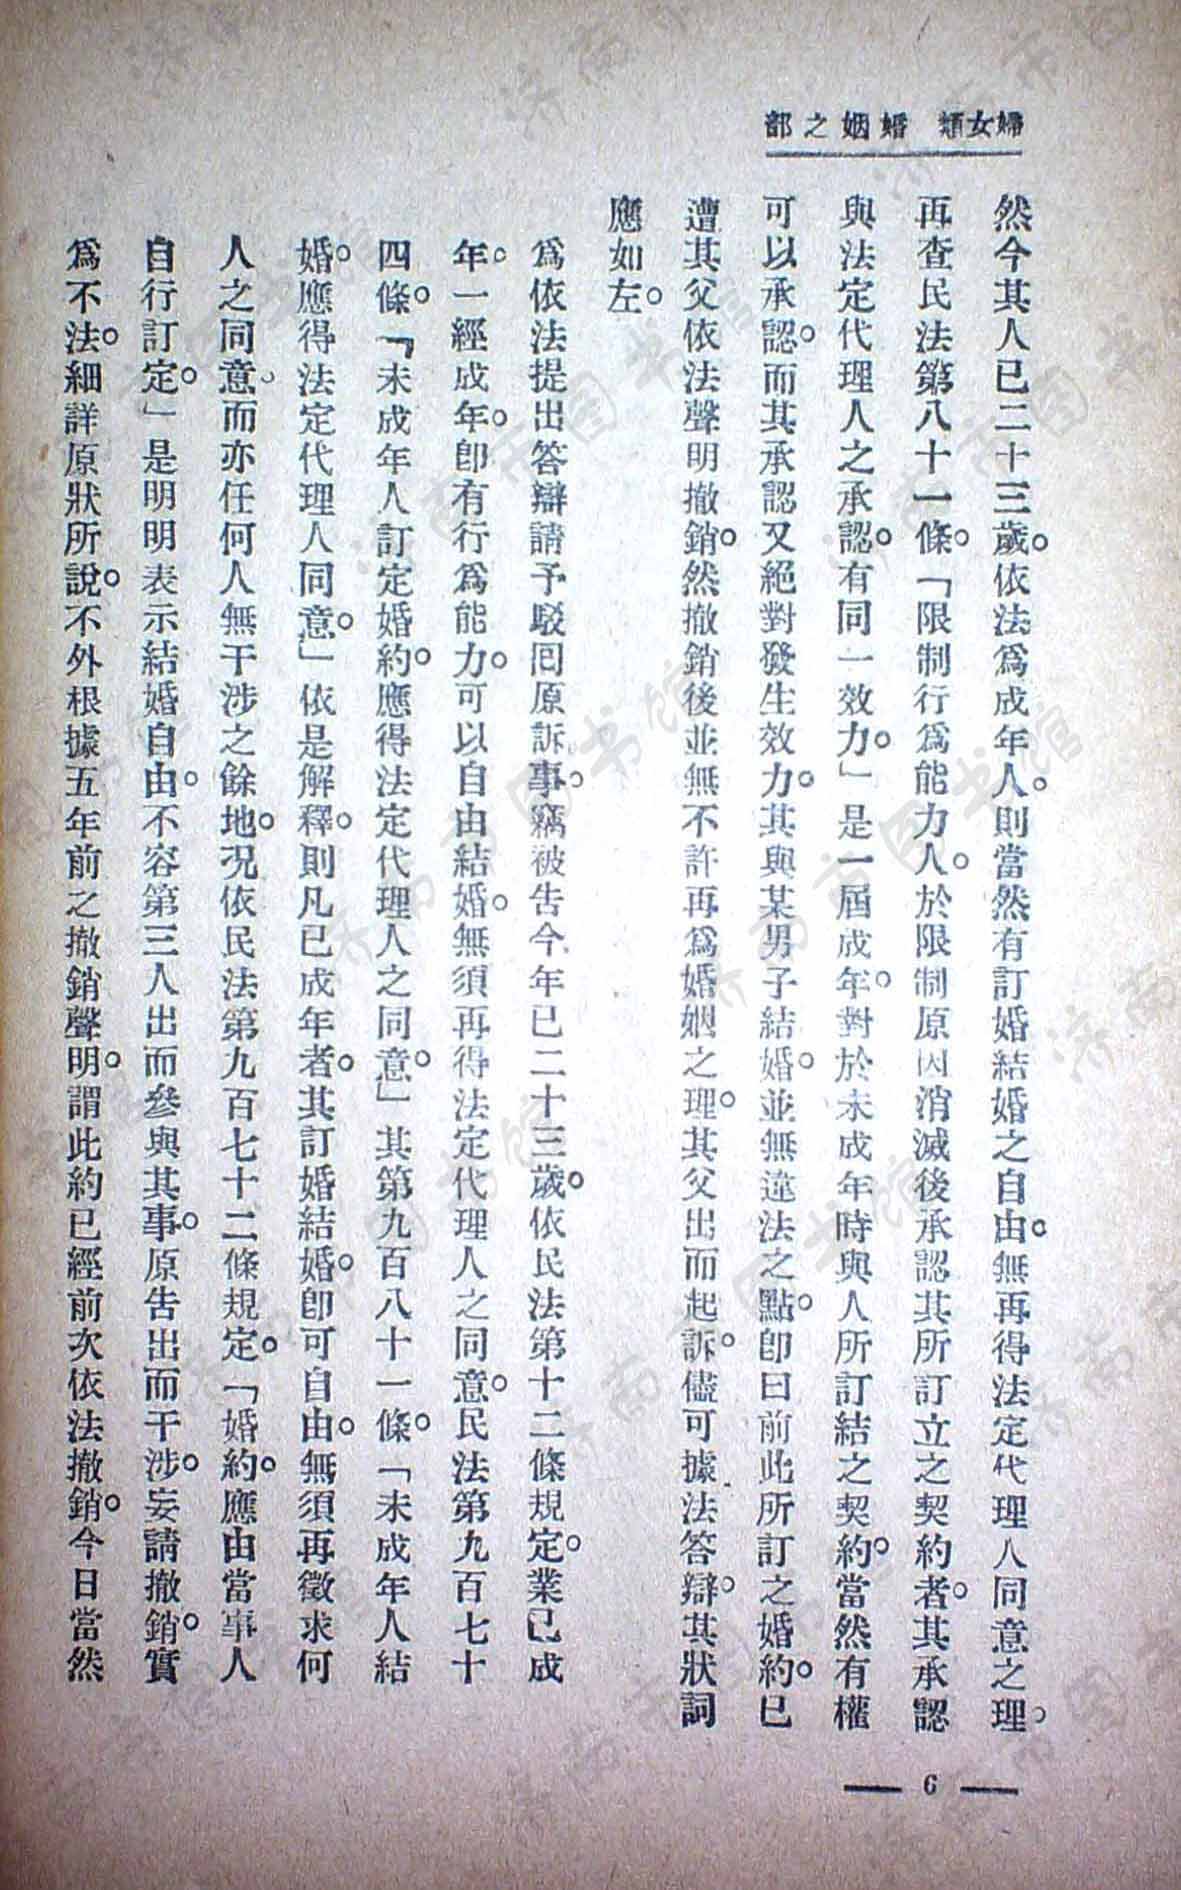 婦女類 婚姻之部
然今其人已二十三歲。依法爲成年人。則當然有訂婚結婚之自由。無再得法定代理人同意之理。
再查民法第八十一條。「限制行爲能力人。於限制原因消滅後承認其所訂立之契約者。其承認
與法定代理人之承認。有同一效力。」是一屆成年。對於未成年時與人所訂結之契約。當然有權
可以承認。而其承認又絕對發生效力。其與某男子結婚。並無違法之點。卽曰前此所訂之婚約。已
遭其父依法聲明撤銷。然撤銷後並無不許再爲婚姻之理。其父出而起訴。儘可據法答辯。其狀詞
應如左。
爲依法提出答辯請予駁回原訴事。竊被告今年已二十三歲。依民法第十二條規定。業已成
年。一經成年。卽有行爲能力。可以自由結婚。無須再得法定代理人之同意。民法第九百七十
四條。「未成年人訂定婚約。應得法定代理人之同意。」其第九百八十一條。「未成年人結
婚。應得法定代理人同意。」依是解釋。則凡已成年者。其訂婚結婚。卽可自由。無須再徵求何
人之同意。而亦任何人無干涉之餘地。况依民法第九百七十二條規定。「婚約。應由當事人
自行訂定。」是明明表示結婚自由。不容第三人出而參與其事。原告出而干涉。妄請撤銷。實
爲不法。細詳原狀所說。不外根據五年前之撤銷聲明。謂此約已經前次依法撤銷。今日當然
6
济南市图书馆